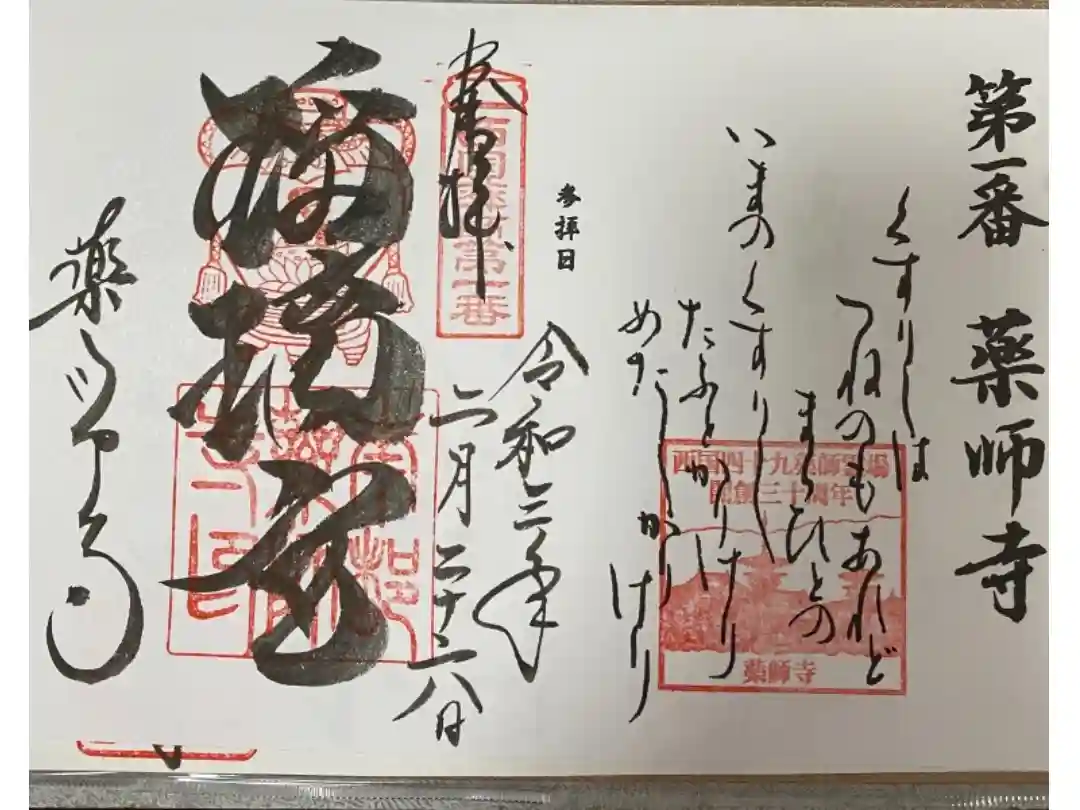 第一番 薬師寺
くすりしは
つねのもあれど
まらひとの
いまのくすりし
たふとかりけり
めだしかりけり
西国四十九薬師霊場
開創三十周年
薬師寺
参拝日
令和二年
二月二十六日
奉拝
西国薬師第一番
薬師寺